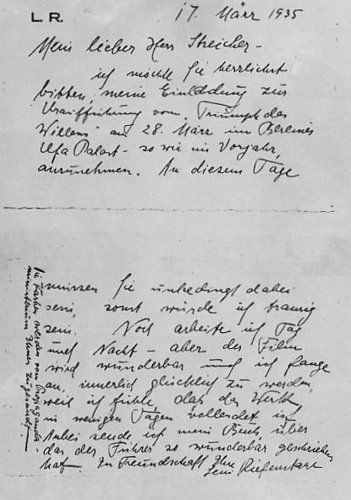 L. R.
17. März 1935
Mein lieber Herr Streicher -
ich möchte Sie herzlichst
bitten meine Einladung zur
Uraufführung vom "Triumph des
Willens" am 28. März im Berliner
Ufa Palast - so wie im Vorjahr,
anzunehmen. An diesem Tage
müssen Sie unbedingt dabei
sein, sonst würde ich traurig
sein. Noch arbeite ich Tag
und Nacht - aber der Film
wird wunderbar und ich fange
an, innerlich glücklich zu werden,
weil ich fühle das das Werk
in wenigen Tagen vollendet ist
Anbei sende ich mein Buch über
das der Führer so wunderbar geschrieben
hat. In Freundschaft Ihre
Leni Riefenstahl
Die Karten werden vom Propaganda-
ministerium Ihnen zugesandt